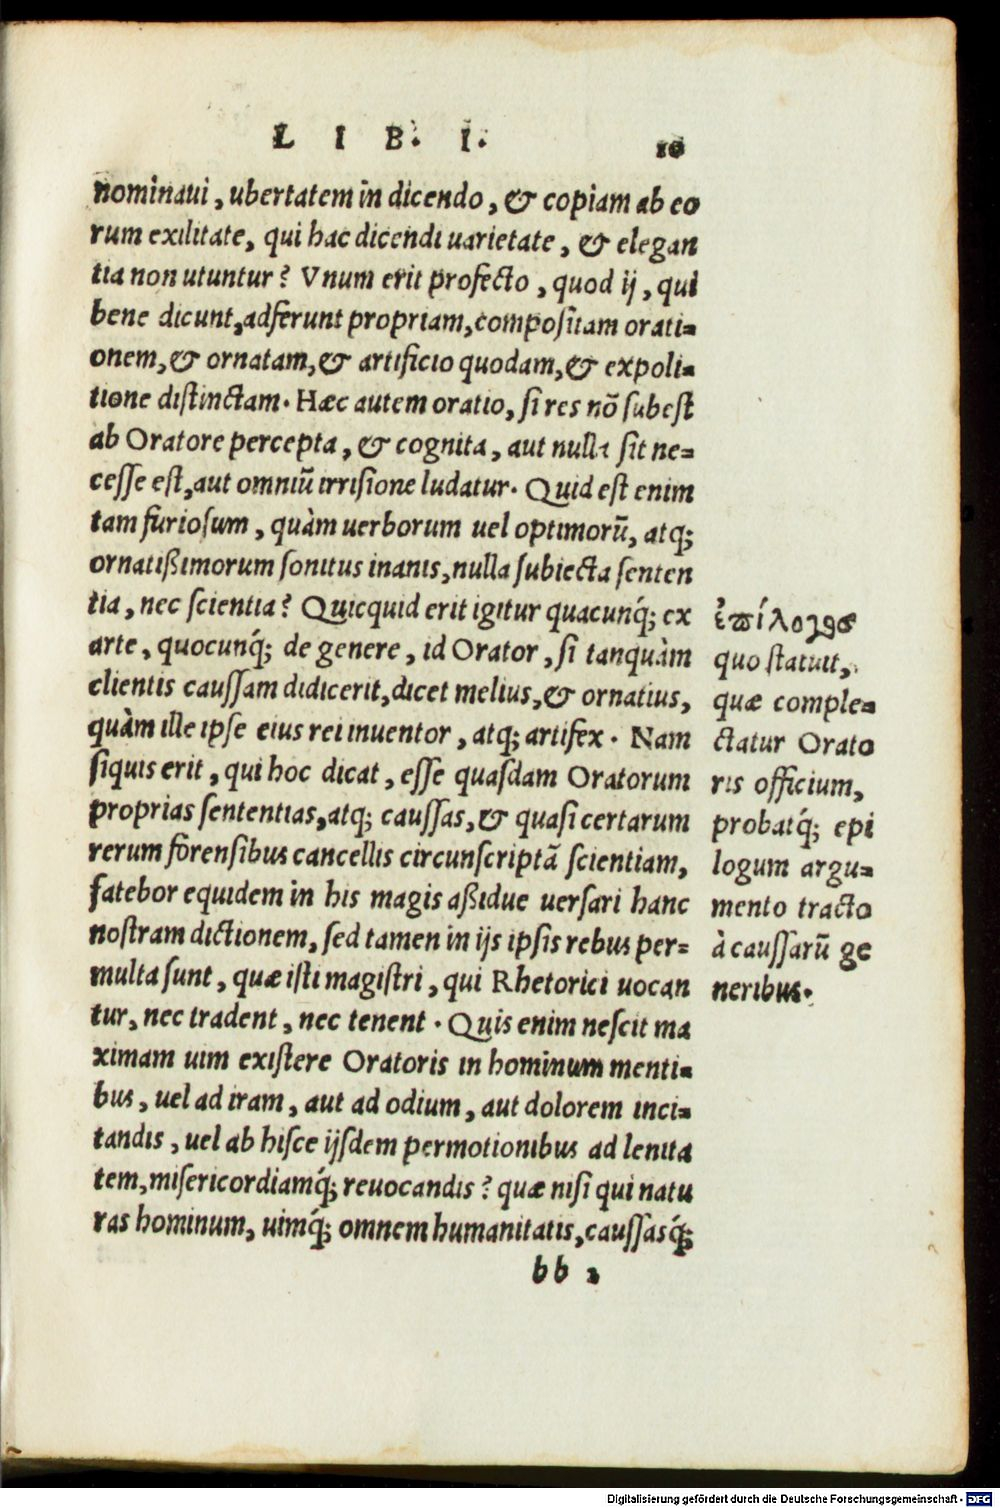 LIB. I. 10
nominaui, ubertatem in dicendo, & copiam ab eo
rum exilitate, qui hac dicendi uarietate, & elegan
tia non utuntur? Vnum erit profecto, quod ij, qui
bene dicunt, adferunt propriam, compositam orati=
onem, & ornatam, & artificio quodam, & expoli=
tione distinctam. Hæc autem oratio, si res nō subest
ab Oratore percepta, & cognita, aut nulla sit ne=
cesse est, aut omniū irrisione ludatur. Quid est enim
tam furiosum, quàm uerborum uel optimorū, atq;
ornatißimorum sonitus inanis, nulla subiecta senten
tia, nec scientia? Quicquid erit igitur quacunq́; ex
arte, quocunq́; de genere, id Orator, si tanquàm
clientis caussam didicerit, dicet melius, & ornatius,
quàm ille ipse eius rei inuentor, atq; artifex. Nam
siquis erit, qui hoc dicat, esse quasdam Oratorum
proprias sententias, atq; caussas, & quasi certarum
rerum forensibus cancellis circunscriptā scientiam,
fatebor equidem in his magis aßidue uersari hanc
nostram dictionem, sed tamen in ijs ipsis rebus per=
multa sunt, quæ isti magistri, qui Rhetorici uocan
tur, nec tradent, nec tenent. Quis enim nescit ma
ximam uim existere Oratoris in hominum menti=
bus, uel ad iram, aut ad odium, aut dolorem inci=
tandis, uel ab hisce ijsdem permotionibus ad lenita
tem, misericordiamq́; reuocandis? quæ nisi qui natu
ras hominum, uimq́; omnem humanitatis, caussasq́;
bb 2
ἐπίλογος
quo statuit,
quæ comple=
ctatur Orato
ris officium,
probatq́; epi
logum argu=
mento tracto
à caussarū ge
neribus.
Digitalisierung gefördert durch die Deutsche Forschungsgemeinschaft - DFG